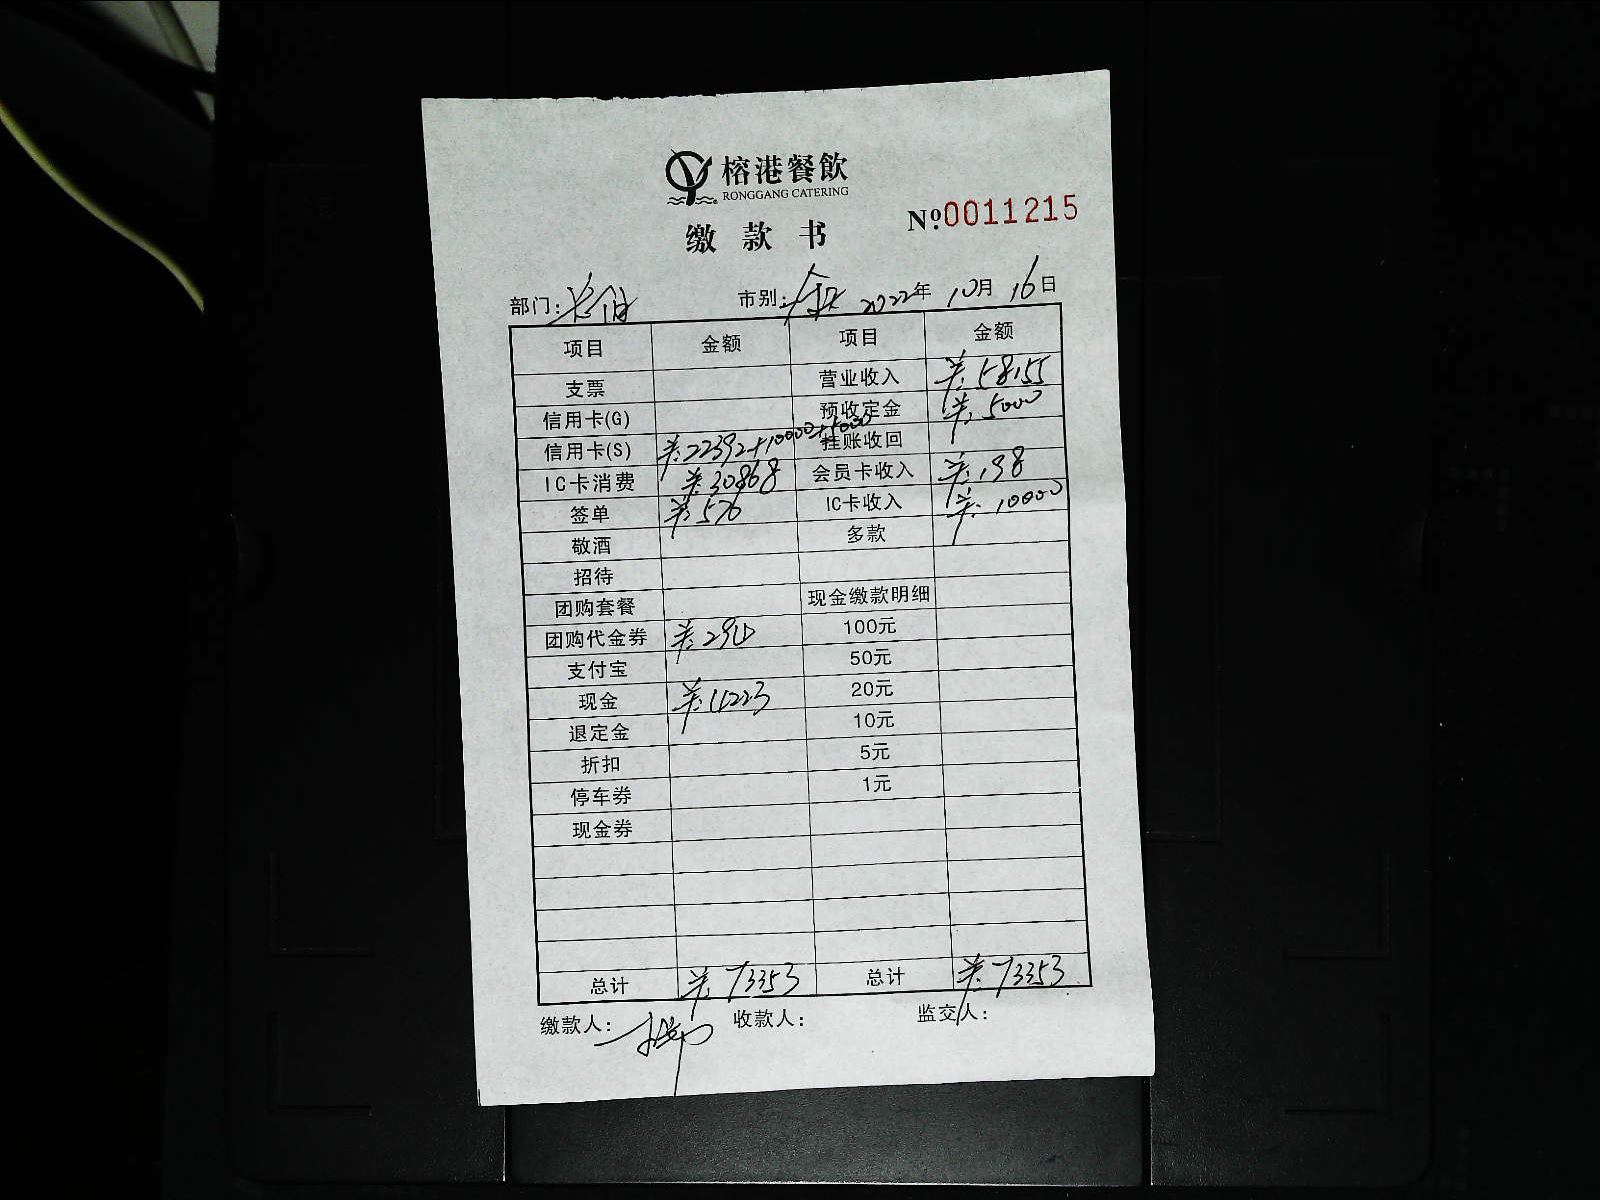 榕港餐飲
RONGGANG CATERING
缴款书
№0011215
部门: 市别: 2022年 10月 16日
项目 金额 项目 金额
支票 营业收入 ¥:58155
信用卡(G) 预收定金 ¥:5000
信用卡(S) ¥:22392+10000+5000 挂账收回
IC卡消费 ¥:30868 会员卡收入 ¥:198
签单 ¥:576 IC卡收入 ¥:10000
敬酒 多款
招待
团购套餐 现金缴款明细
团购代金券 ¥:294 100元
支付宝 50元
现金 ¥:4223 20元
退定金 10元
折扣 5元
停车券 1元
现金券
总计 ¥:73353 总计 ¥:73353
缴款人: 收款人: 监交人: